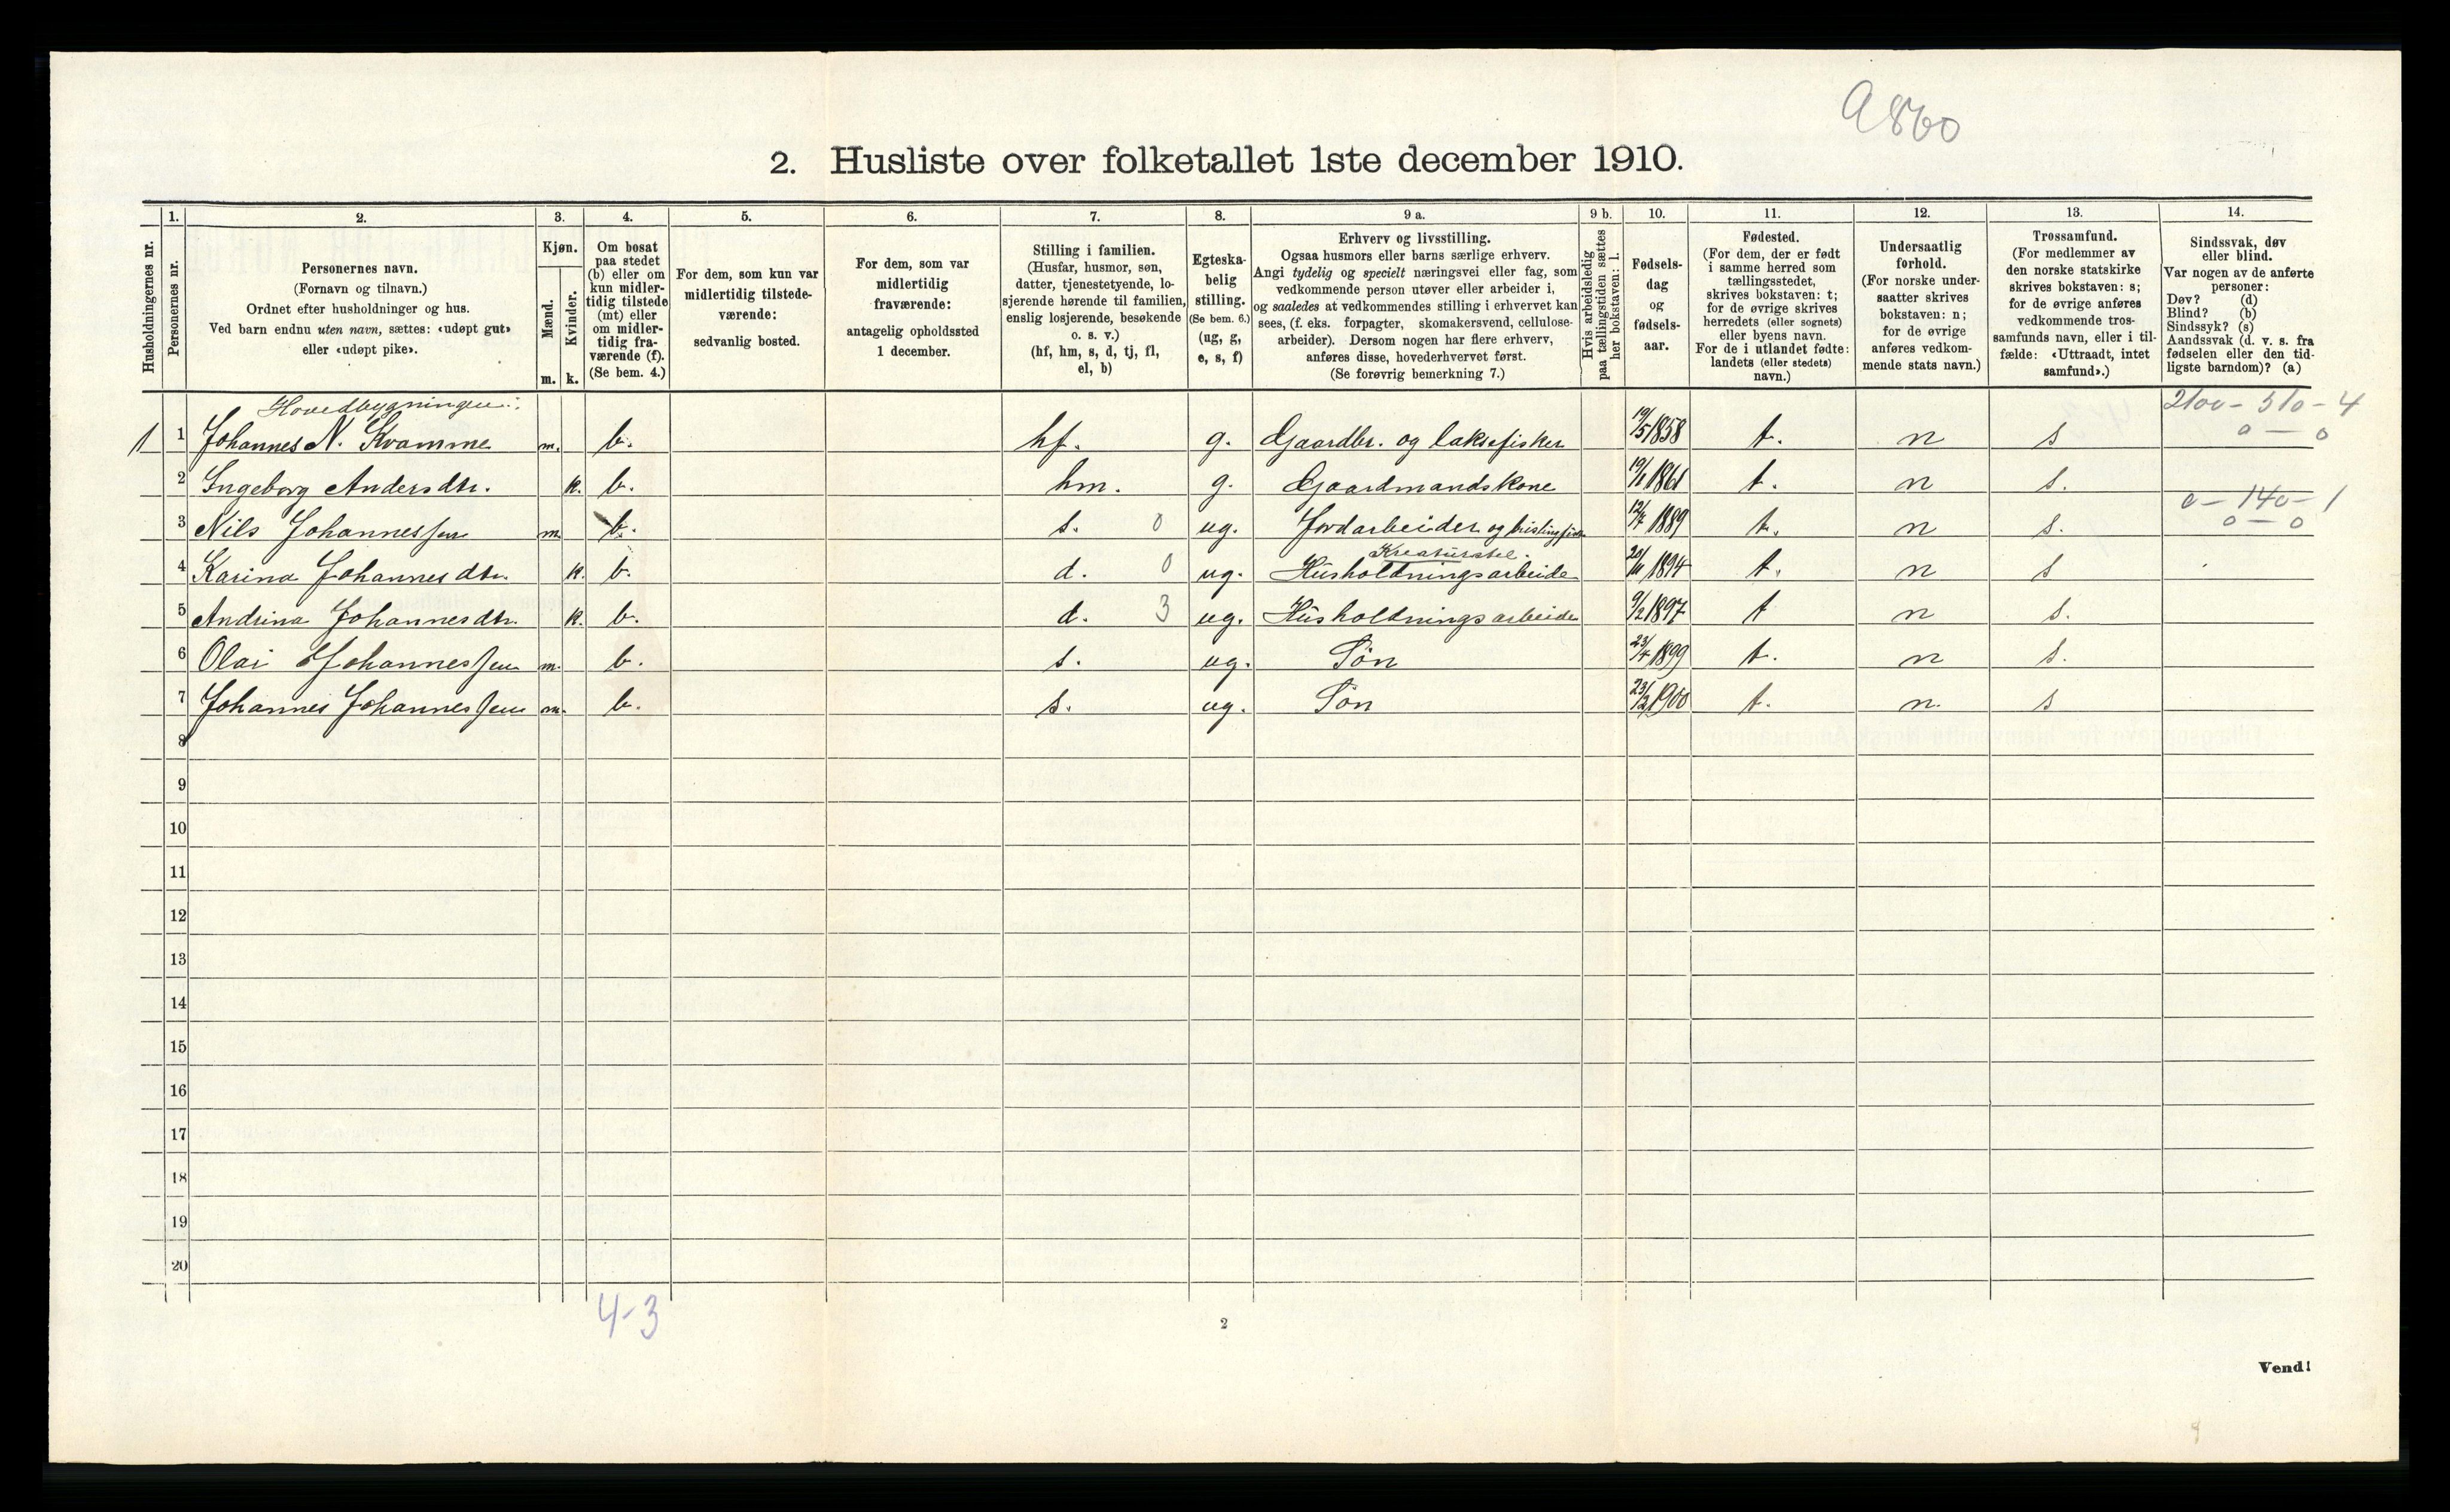 9860
2. Husliste over folketallet 1ste december 1910.
Husholdningernes nr.
1.
Personernes nr.
2.
Personernes navn.
(Fornavn og tilnavn.)
Ordnet efter husholdninger og hus.
Ved barn endnu uten navn, sættes: «udøpt gut»
eller «udøpt pike».
3.
Kjøn.
Mænd.
Kvinder.
m. k.
4.
Om bosat
paa stedet
(b) eller om
kun midler-
tidig tilstede
(mt) eller
om midler-
tidig fra-
værende (f).
(Se bem. 4.)
5.
For dem, som kun var
midlertidig tilstede-
værende:
sedvanlig bosted.
6.
For dem, som var
midlertidig
fraværende:
antagelig opholdssted
1 december.
7.
Stilling i familien.
(Husfar, husmor, søn,
datter, tjenestetyende, lo-
sjerende hørende til familien,
enslig losjerende, besøkende
o. s. v.)
(hf, hm, s, d, tj, fl,
el, b)
8.
Egteska-
belig
stilling.
(Se bem. 6.)
(ug, g,
e, s, f)
9 a.
Erhverv og livsstilling.
Ogsaa husmors eller barns særlige erhverv.
Angi tydelig og specielt næringsvei eller fag, som
vedkommende person utøver eller arbeider i,
og saaledes at vedkommendes stilling i erhvervet kan
sees, (f. eks. forpagter, skomakersvend, cellulose-
arbeider). Dersom nogen har flere erhverv,
anføres disse, hovederhvervet først.
(Se forøvrig bemerkning 7.)
9 b.
Hvis arbeidsledig
paa tællingstiden sættes
her bokstaven: l.
10.
Fødsels-
dag
og
fødsels-
aar.
11.
Fødested.
(For dem, der er født
i samme herred som
tællingsstedet,
skrives bokstaven: t;
for de øvrige skrives
herredets (eller sognets)
eller byens navn.
For de i utlandet fødte:
landets (eller stedets)
navn.)
12.
Undersaatlig
forhold.
(For norske under-
saatter skrives
bokstaven: n;
for de øvrige
anføres vedkom-
mende stats navn.)
13.
Trossamfund.
(For medlemmer av
den norske statskirke
skrives bokstaven: s;
for de øvrige anføres
vedkommende tros-
samfunds navn, eller i til-
fælde: «Uttraadt, intet
samfund».)
14.
Sindssvak, døv
eller blind.
Var nogen av de anførte
personer:
Døv? (d)
Blind? (b)
Sindssyk? (s)
Aandssvak (d. v. s. fra
fødselen eller den tid-
ligste barndom)? (a)
Hovedbygningen:
2100 - 510 - 4
1 1 Johannes N. Kvamme m. b. hf. g. Gaardbr. og laksefisker 19/5 1858 t. n s 0 — 0
2 Ingeborg Andersdtr. k. b. hm. g. Gaardmandskone 19/1 1861 t. n s.
0 - 140 - 1
3 Nils Johannessen m b. s. 0 ug. Jordarbeider og brislingfisker 12/7 1889 t. n s. 0 — 0
Kreaturstel.
4 Karina Johannesdtr. k. b. d. 0 ug. Husholdningsarbeide 20/11 1894 t. n s
5 Andrina Johannesdtr. k. b. d. 3 ug. Husholdningsarbeide 9/2 1897 t n s.
6 Olai Johannessen m. b. s. ug. Søn 23/4 1899 t. n s.
7 Johannes Johannessen m. b. s. ug. Søn 23/2 1900 t. n. s
8
9
10
11
12
13
14
15
16
17
18
19
20
4-3
2
Vend!